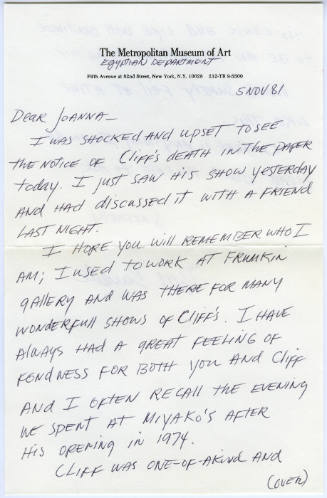 The Metropolitan Museum of Art
EGYPTIAN DEPARTMENT
Fifth Avenue at 82nd Street, New York, N.Y. 10028 212-TR 9-5500
5 NOV 81
DEAR JOANNA–
I WAS SHOCKED AND UPSET TO SEE
THE NOTICE OF CLIFF'S DEATH IN THE PAPER
TODAY. I JUST SAW HIS SHOW YESTERDAY
AND HAD DISCUSSED IT WITH A FRIEND
LAST NIGHT.
I HOPE YOU WILL REMEMBER WHO I
AM; I USED TO WORK AT FRUMKIN
GALLERY AND WAS THERE FOR MANY
WONDERFULL SHOWS OF CLIFF'S. I HAVE
ALWAYS HAD A GREAT FEELING OF
FONDNESS FOR BOTH YOU AND CLIFF
AND I OFTEN RECALL THE EVENING
WE SPENT AT MIYAKO'S AFTER
HIS OPENING IN 1974.
CLIFF WAS ONE-OF-A-KIND AND
(OVER)